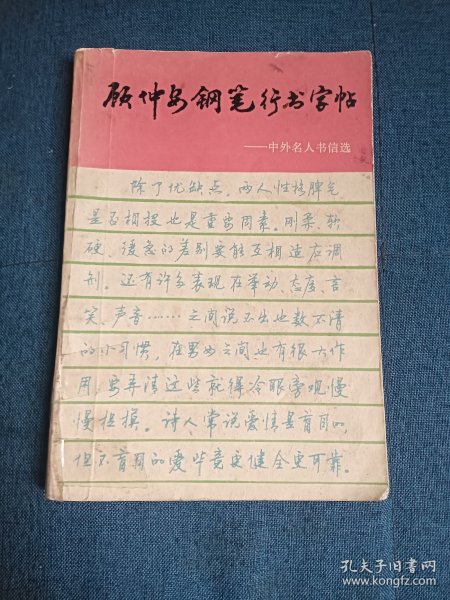 顾仲安钢笔行书字帖
——中外名人书信选
除了优缺点，两人性格脾气
是否相投也是重要因素。刚柔、软
硬、缓急的差别要能互相适应调
剂。还有许多表现在举动、态度、言
笑、声音……之间说不出也数不清
的小习惯，在男女之间也有很大作
用，要弄清这些就得冷眼旁观慢
慢捉摸。诗人常说爱情是盲目的，
但不盲目的爱毕竟更健全更可靠。
孔夫子旧书网
www.kongfz.com